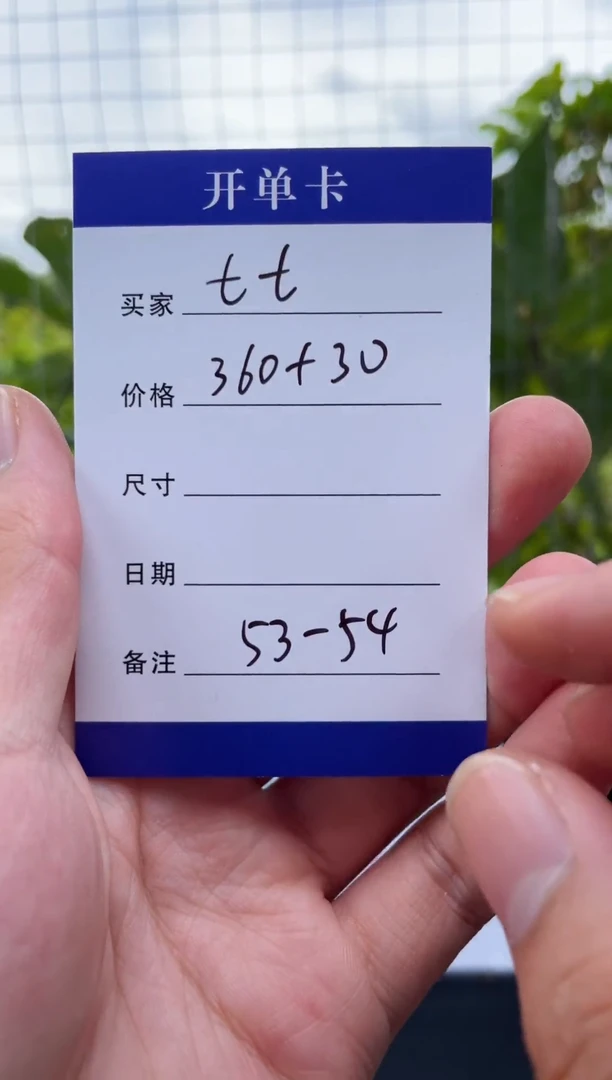 开单卡
买家 tt
价格 360+30
尺寸
日期
备注 53-54